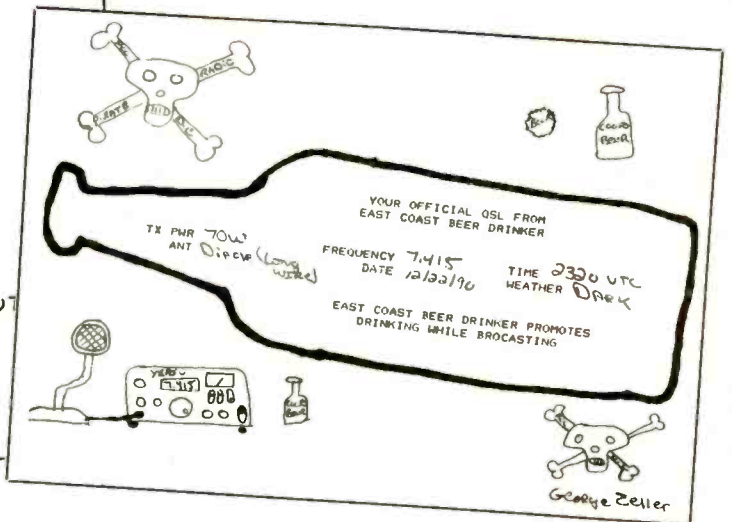 PIRATE
RADIO
BEER
COLD
BEER
YOUR OFFICIAL QSL FROM
EAST COAST BEER DRINKER
TX PWR 70W
ANT Dipole (Long
Wire)
FREQUENCY 7.415
DATE 12/22/90
TIME 2320 UTC
WEATHER DARK
EAST COAST BEER DRINKER PROMOTES
DRINKING WHILE BROCASTING
7.415
BEER
George Zeller